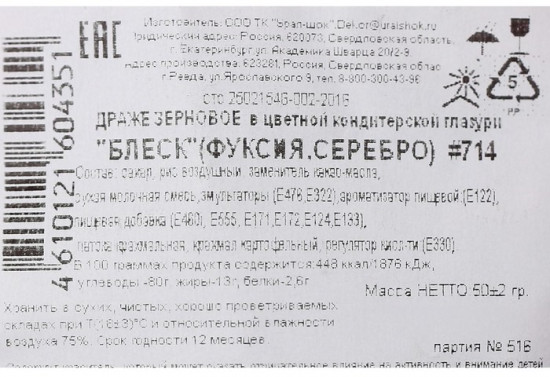 Изготовитель: ООО ТК "Урал-шок", Dekor@uralshok.ru
Юридический адрес: Россия, 620073, Свердловская область,
г. Екатеринбург, ул. Академика Шварца 20/2-9.
Адрес производства: 623281, Россия, Свердловская облас
г. Ревда, ул. Ярославского 9, тел. 8-800-300-43-96
сто 25021546-002-2016
ДРАЖЕ ЗЕРНОВОЕ в цветной кондитерской глазури
"БЛЕСК" (ФУКСИЯ.СЕРЕБРО) #714
Состав: сахар, рис воздушный, заменитель какао-масла,
сухая молочная смесь, эмульгаторы (Е476,Е322) ароматизатор пищевой,(Е122),
пищевая добавка (Е460i, Е555, Е171,Е172,Е124,Е133),
патока крахмальная, крахмал картофельный, регулятор кисл-ти (Е330)
В 100 граммах продукта содержится:448 ккал/1876 кДж,
углеводы -80г, жиры-13г, белки-2,6г
Масса НЕТТО 50±2 гр.
Хранить в сухих, чистых, хорошо проветриваемых
складах при Т(18±3)°С и относительной влажности
воздуха 75%. Срок годности 12 месяцев.
партия № 516
Содержит краситель, который может оказать отрицательное влияние на активность и внимание детей
4610121604351
ЕАС
5
PP